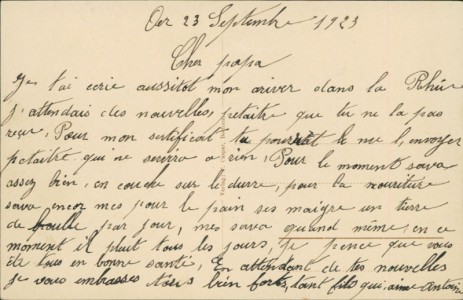 Oer 23 Septembre 1923
Cher papa
Je t'ai ecrie aussitot mon ariver dans la Rhür
j'attendais des nouvelles, petaitre que tu ne la pas
reçue, Pour mon sertificat tu pourrait le me l'envoyer
petaitre qui ne serrra a rien, Pour le moment sava
assez bien, on couche sur le durre, pour la nouriture
sava, encor mes pour le pain ses maigre un tierre
de boulle par jour, mes sava quand même, en ce
moment il pluit tous les jours, je pence que vous
ête tous en bonne santé, En attendant de tes nouvelles
je vous embrasses tous bien fort, tant fils qui aime Antoine